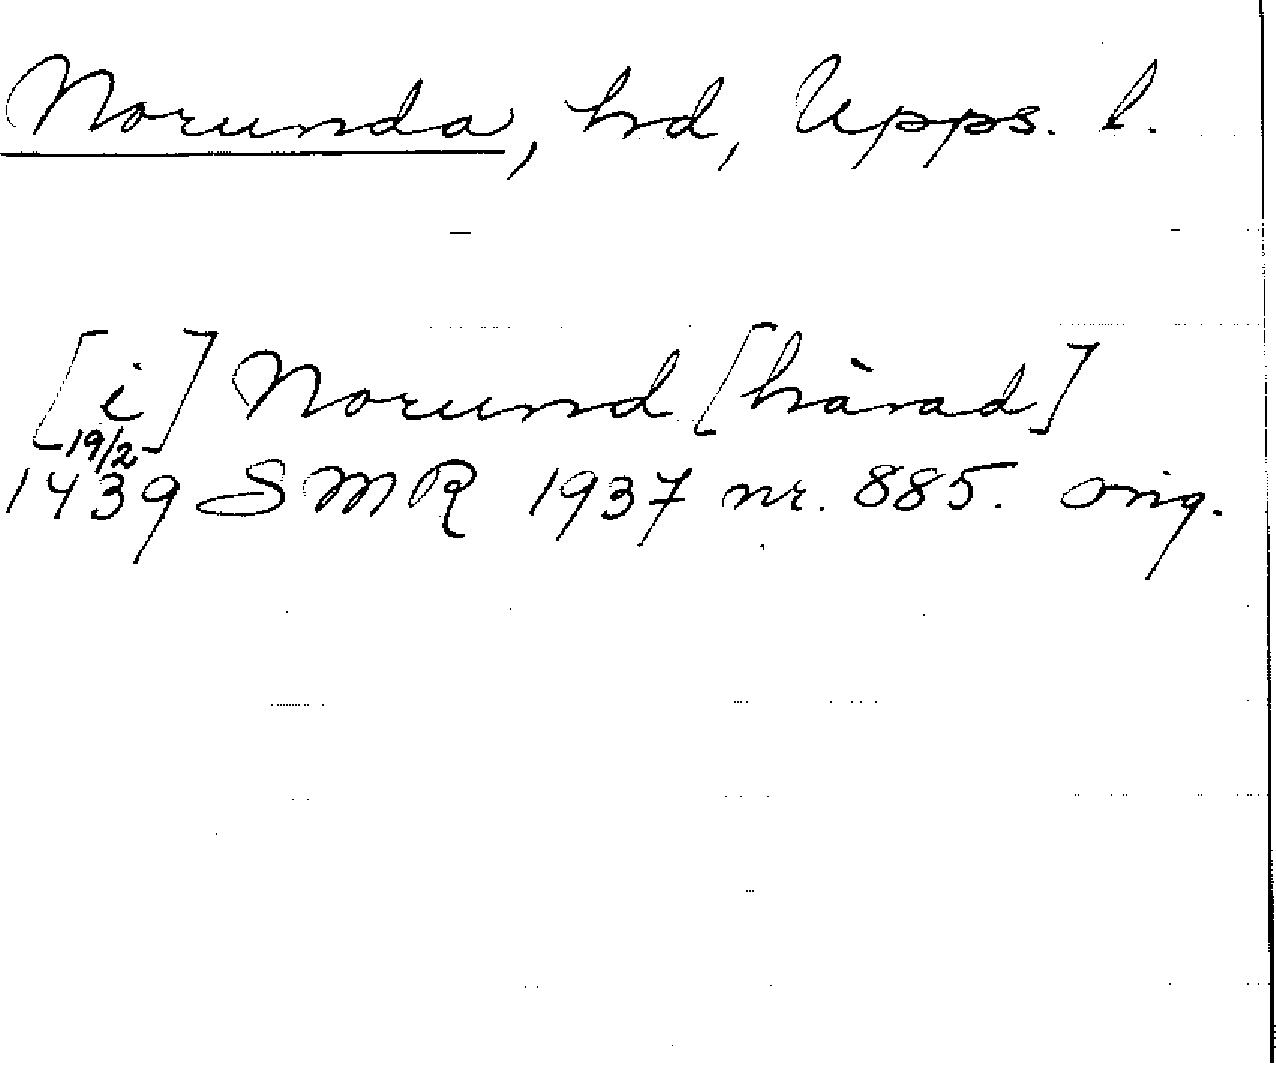 Norunda, hd, Upps. l.
[i] Norund [härad]
19/2
1439 SMR 1937 nr. 885. orig.